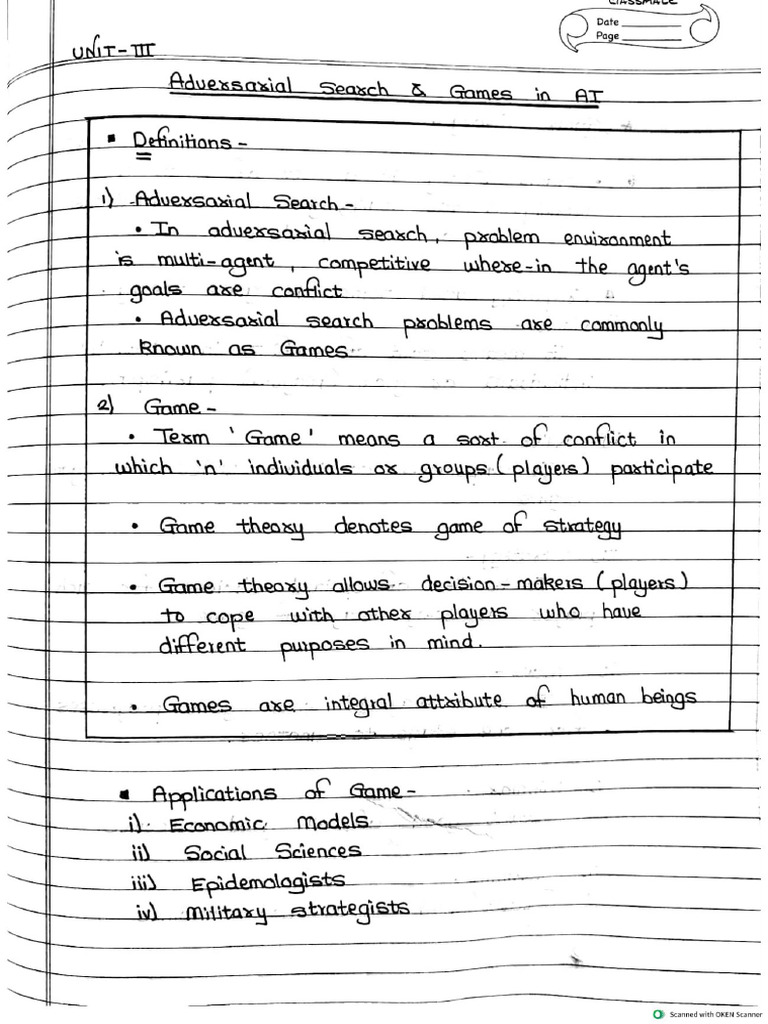 CLASSMATE
Date
Page
UNIT-III
Adversarial Search & Games in AI
▪ Definitions -
1) Adversarial Search -
• In adversarial search, problem environment
is multi-agent, competitive where-in the agent's
goals are conflict
• Adversarial search problems are commonly
known as Games.
2) Game -
• Term 'Game' means a sort of conflict in
which 'n' individuals or groups (players) participate
• Game theory denotes game of strategy
• Game theory allows decision-makers (players)
to cope with other players who have
different purposes in mind.
• Games are integral attribute of human beings
▪ Applications of Game -
i) Economic Models
ii) Social Sciences
iii) Epidemologists
iv) Military strategists
Scanned with OKEN Scanner